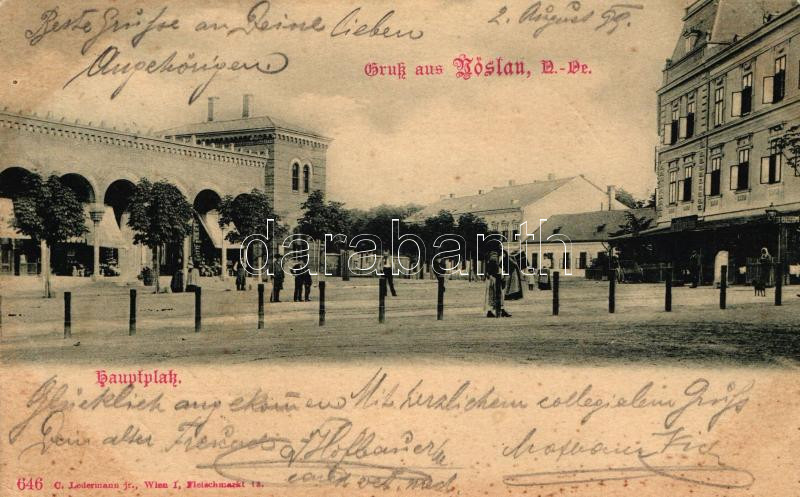 Beste Grüße an Deine lieben
Angehörigen.
2. August 99.
Gruß aus Vöslau, N.-Oe.
darabanth
Hauptplatz.
Glücklich angekommen Mit herzlichem collegialem Gruß
Dein alter Freund
Hofbauer
cand. vet. med.
646 C. Ledermann jr., Wien I, Fleischmarkt 12.